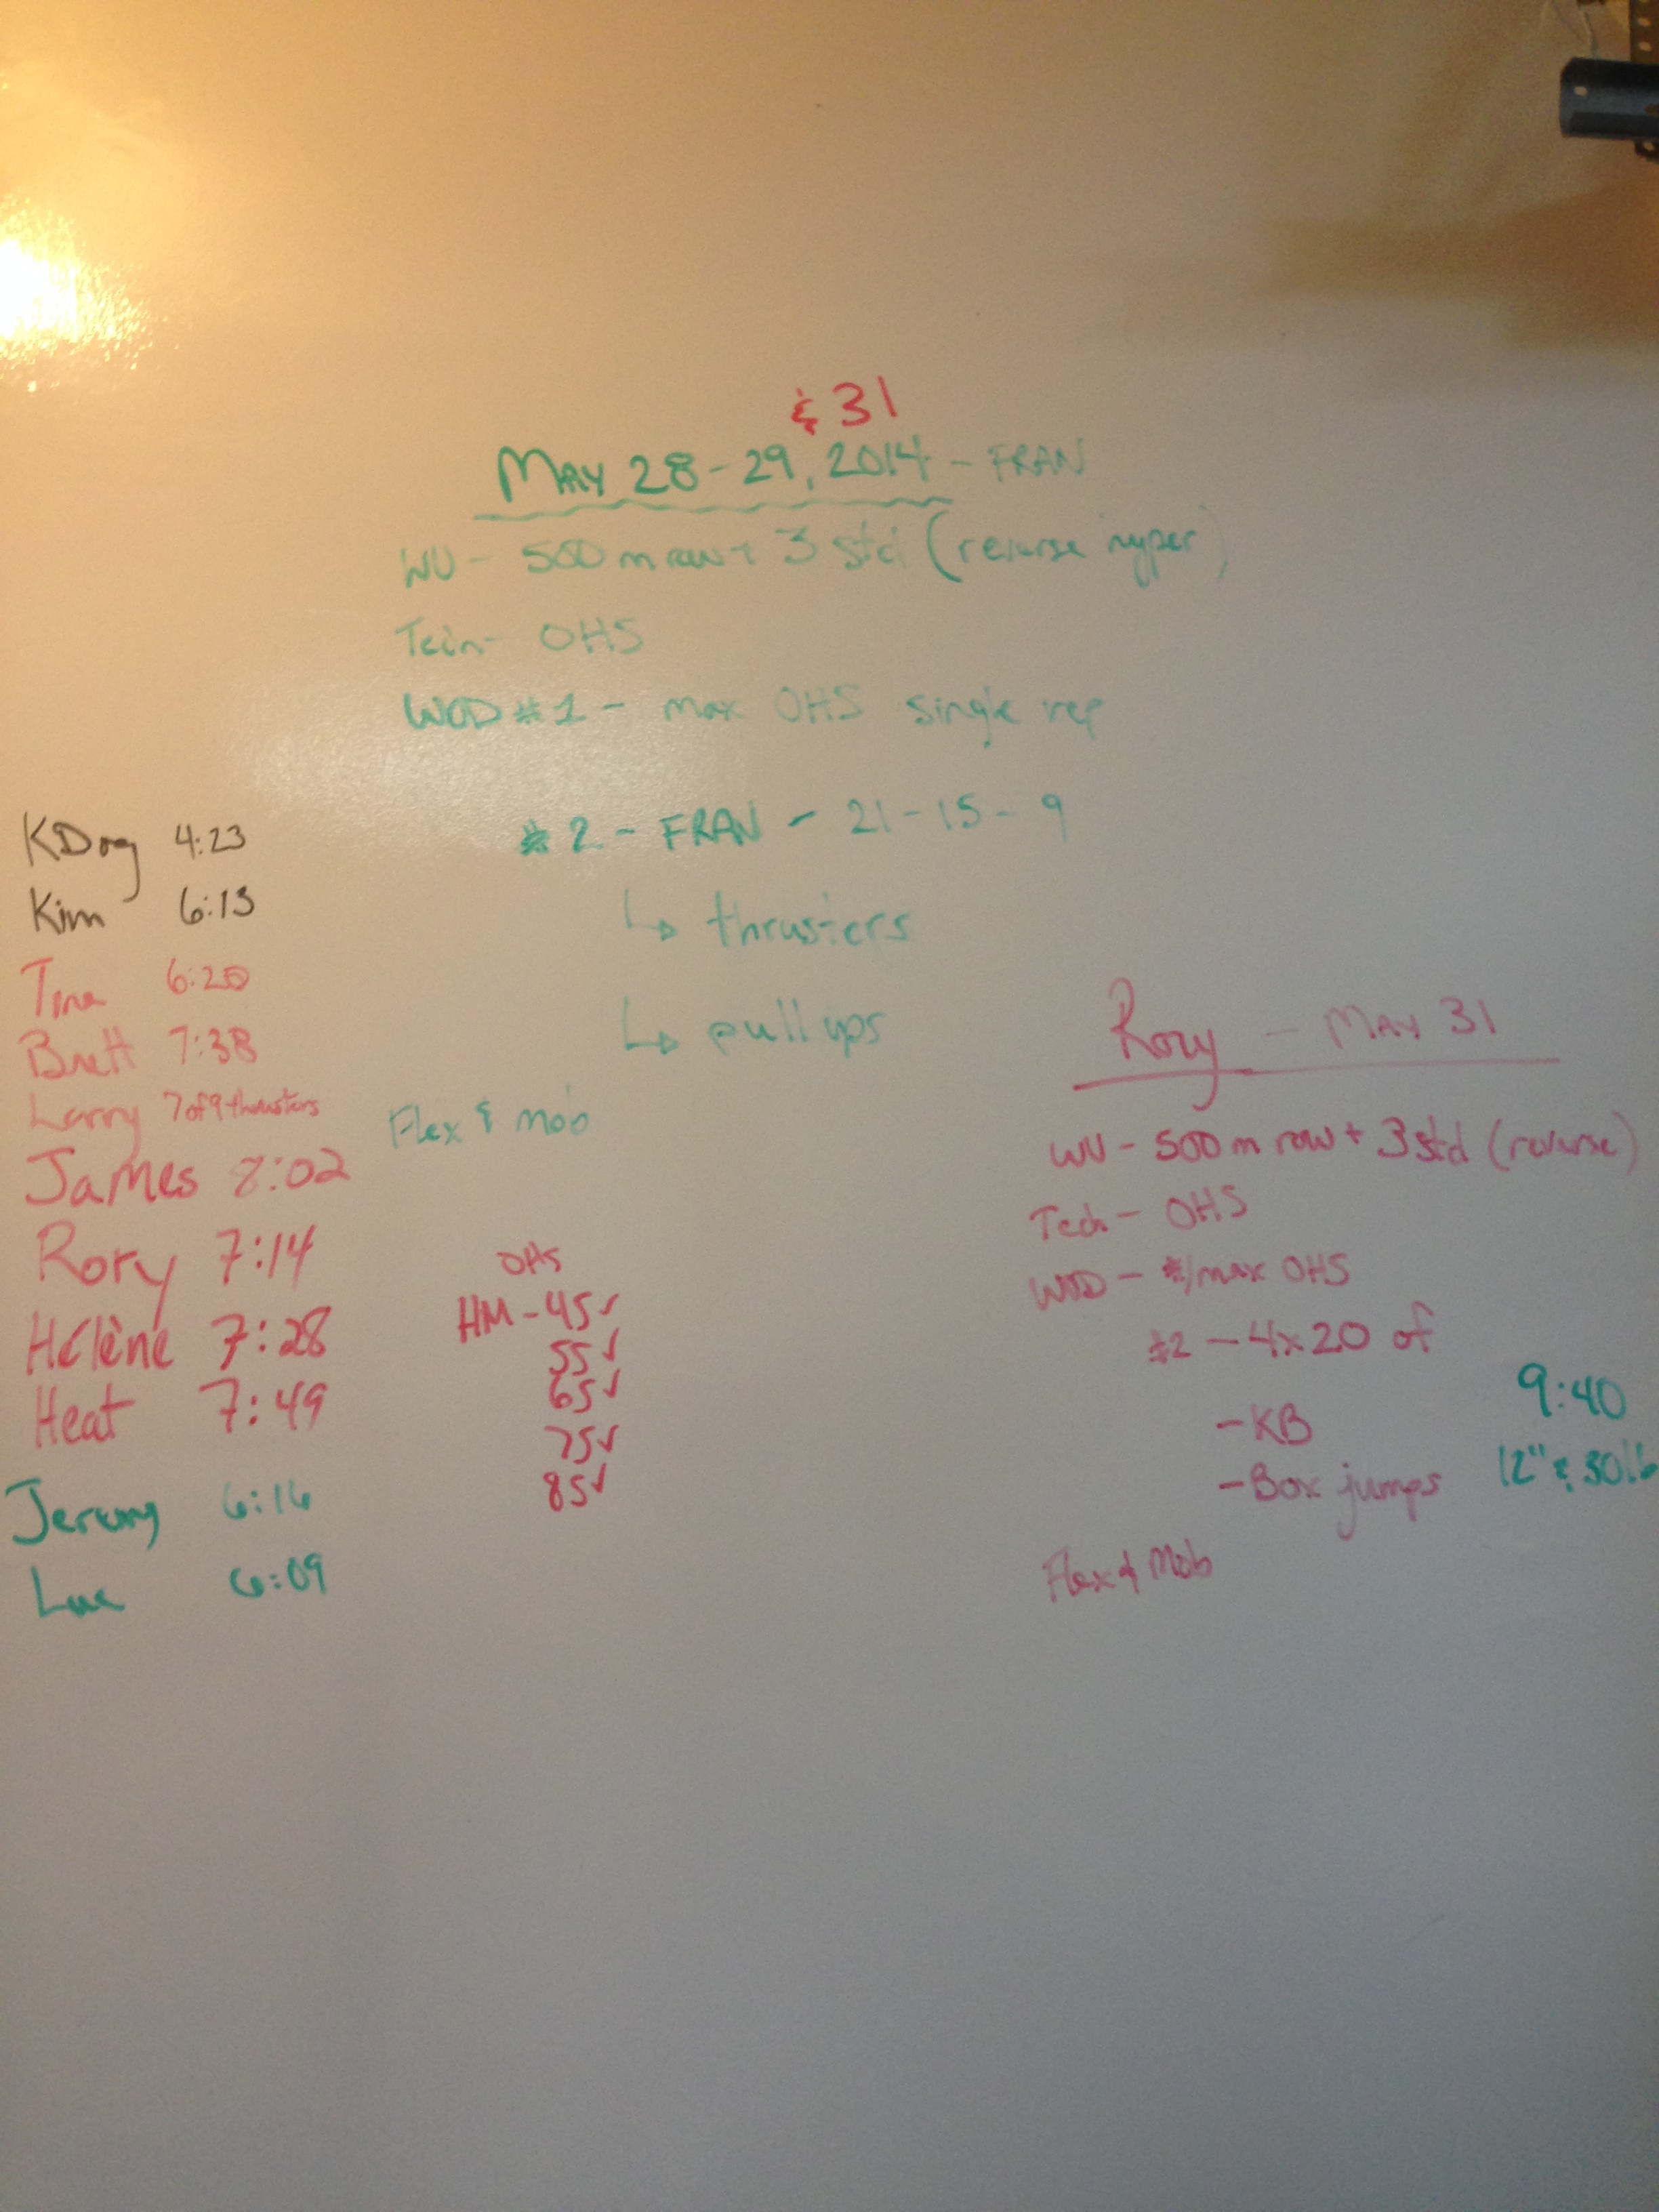 & 31
MAY 28-29, 2014 - FRAN
WU - 500 m row + 3 std (reverse hyper)
Tech - OHS
WOD #1 - max OHS single rep
#2 - FRAN - 21-15-9
↳ thrusters
↳ pull ups
Flex & mob
KDog 4:23
Kim 6:13
Tina 6:20
Brett 7:38
Larry 7 of 9 thrusters
James 8:02
Rory 7:14
Hélène 7:28
Heat 7:49
Jeremy 6:16
Luc 6:09
OHS
HM - 45✓
55✓
65✓
75✓
85✓
Rory - MAY 31
WU - 500 m row + 3 std (reverse)
Tech - OHS
WOD - #1 max OHS
#2 - 4x20 of
- KB
- Box jumps
9:40
12" & 30lb
Flex & Mob